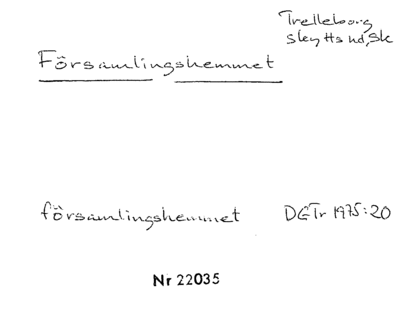 Trelleborg
Skytts hd, Sk
Församlingshemmet
församlingshemmet DGTr 1975:20
Nr 22035